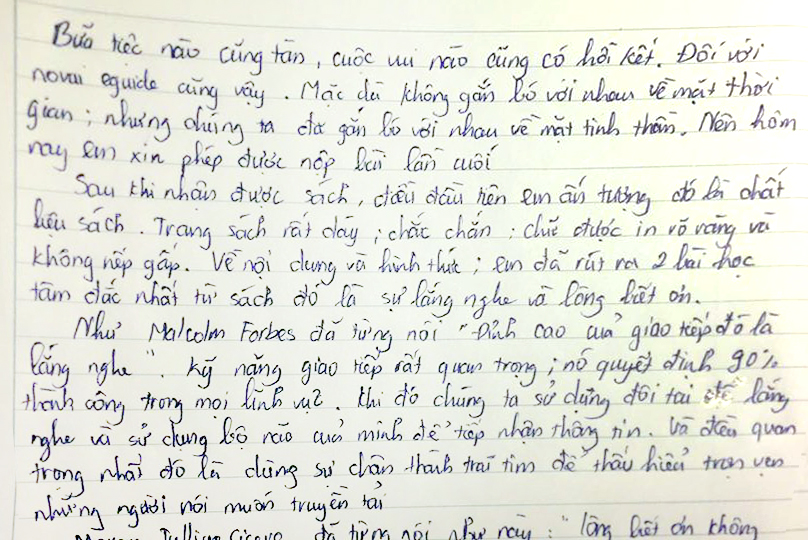 Bữa tiệc nào cũng tàn, cuộc vui nào cũng có hồi kết. Đối với
novai eguide cũng vậy. Mặc dù không gắn bó với nhau về mặt thời
gian; nhưng chúng ta đã gắn bó với nhau về mặt tinh thần. Nên hôm
nay em xin phép được nộp bài lần cuối
Sau khi nhận được sách, điều đầu tiên em ấn tượng đó là chất
liệu sách. Trang sách rất dày; chắc chắn; chữ được in rõ ràng và
không nếp gấp. Về nội dung và hình thức; em đã rút ra 2 bài học
tâm đắc nhất từ sách đó là sự lắng nghe và lòng biết ơn.
Như Malcolm Forbes đã từng nói "Đỉnh cao của giao tiếp đó là
lắng nghe". Kỹ năng giao tiếp rất quan trọng; nó quyết định 90%
thành công trong mọi lĩnh vực. Khi đó chúng ta sử dụng đôi tai để lắng
nghe và sử dụng bộ não của mình để tiếp nhận thông tin. Và điều quan
trọng nhất đó là dùng sự chân thành trái tim để thấu hiểu trọn vẹn
những người nói muốn truyền tải
đã từng nói như này: "lòng biết ơn không